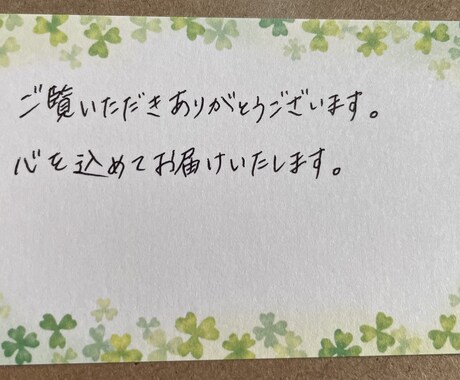 ご覧いただきありがとうございます。
心を込めてお届けいたします。